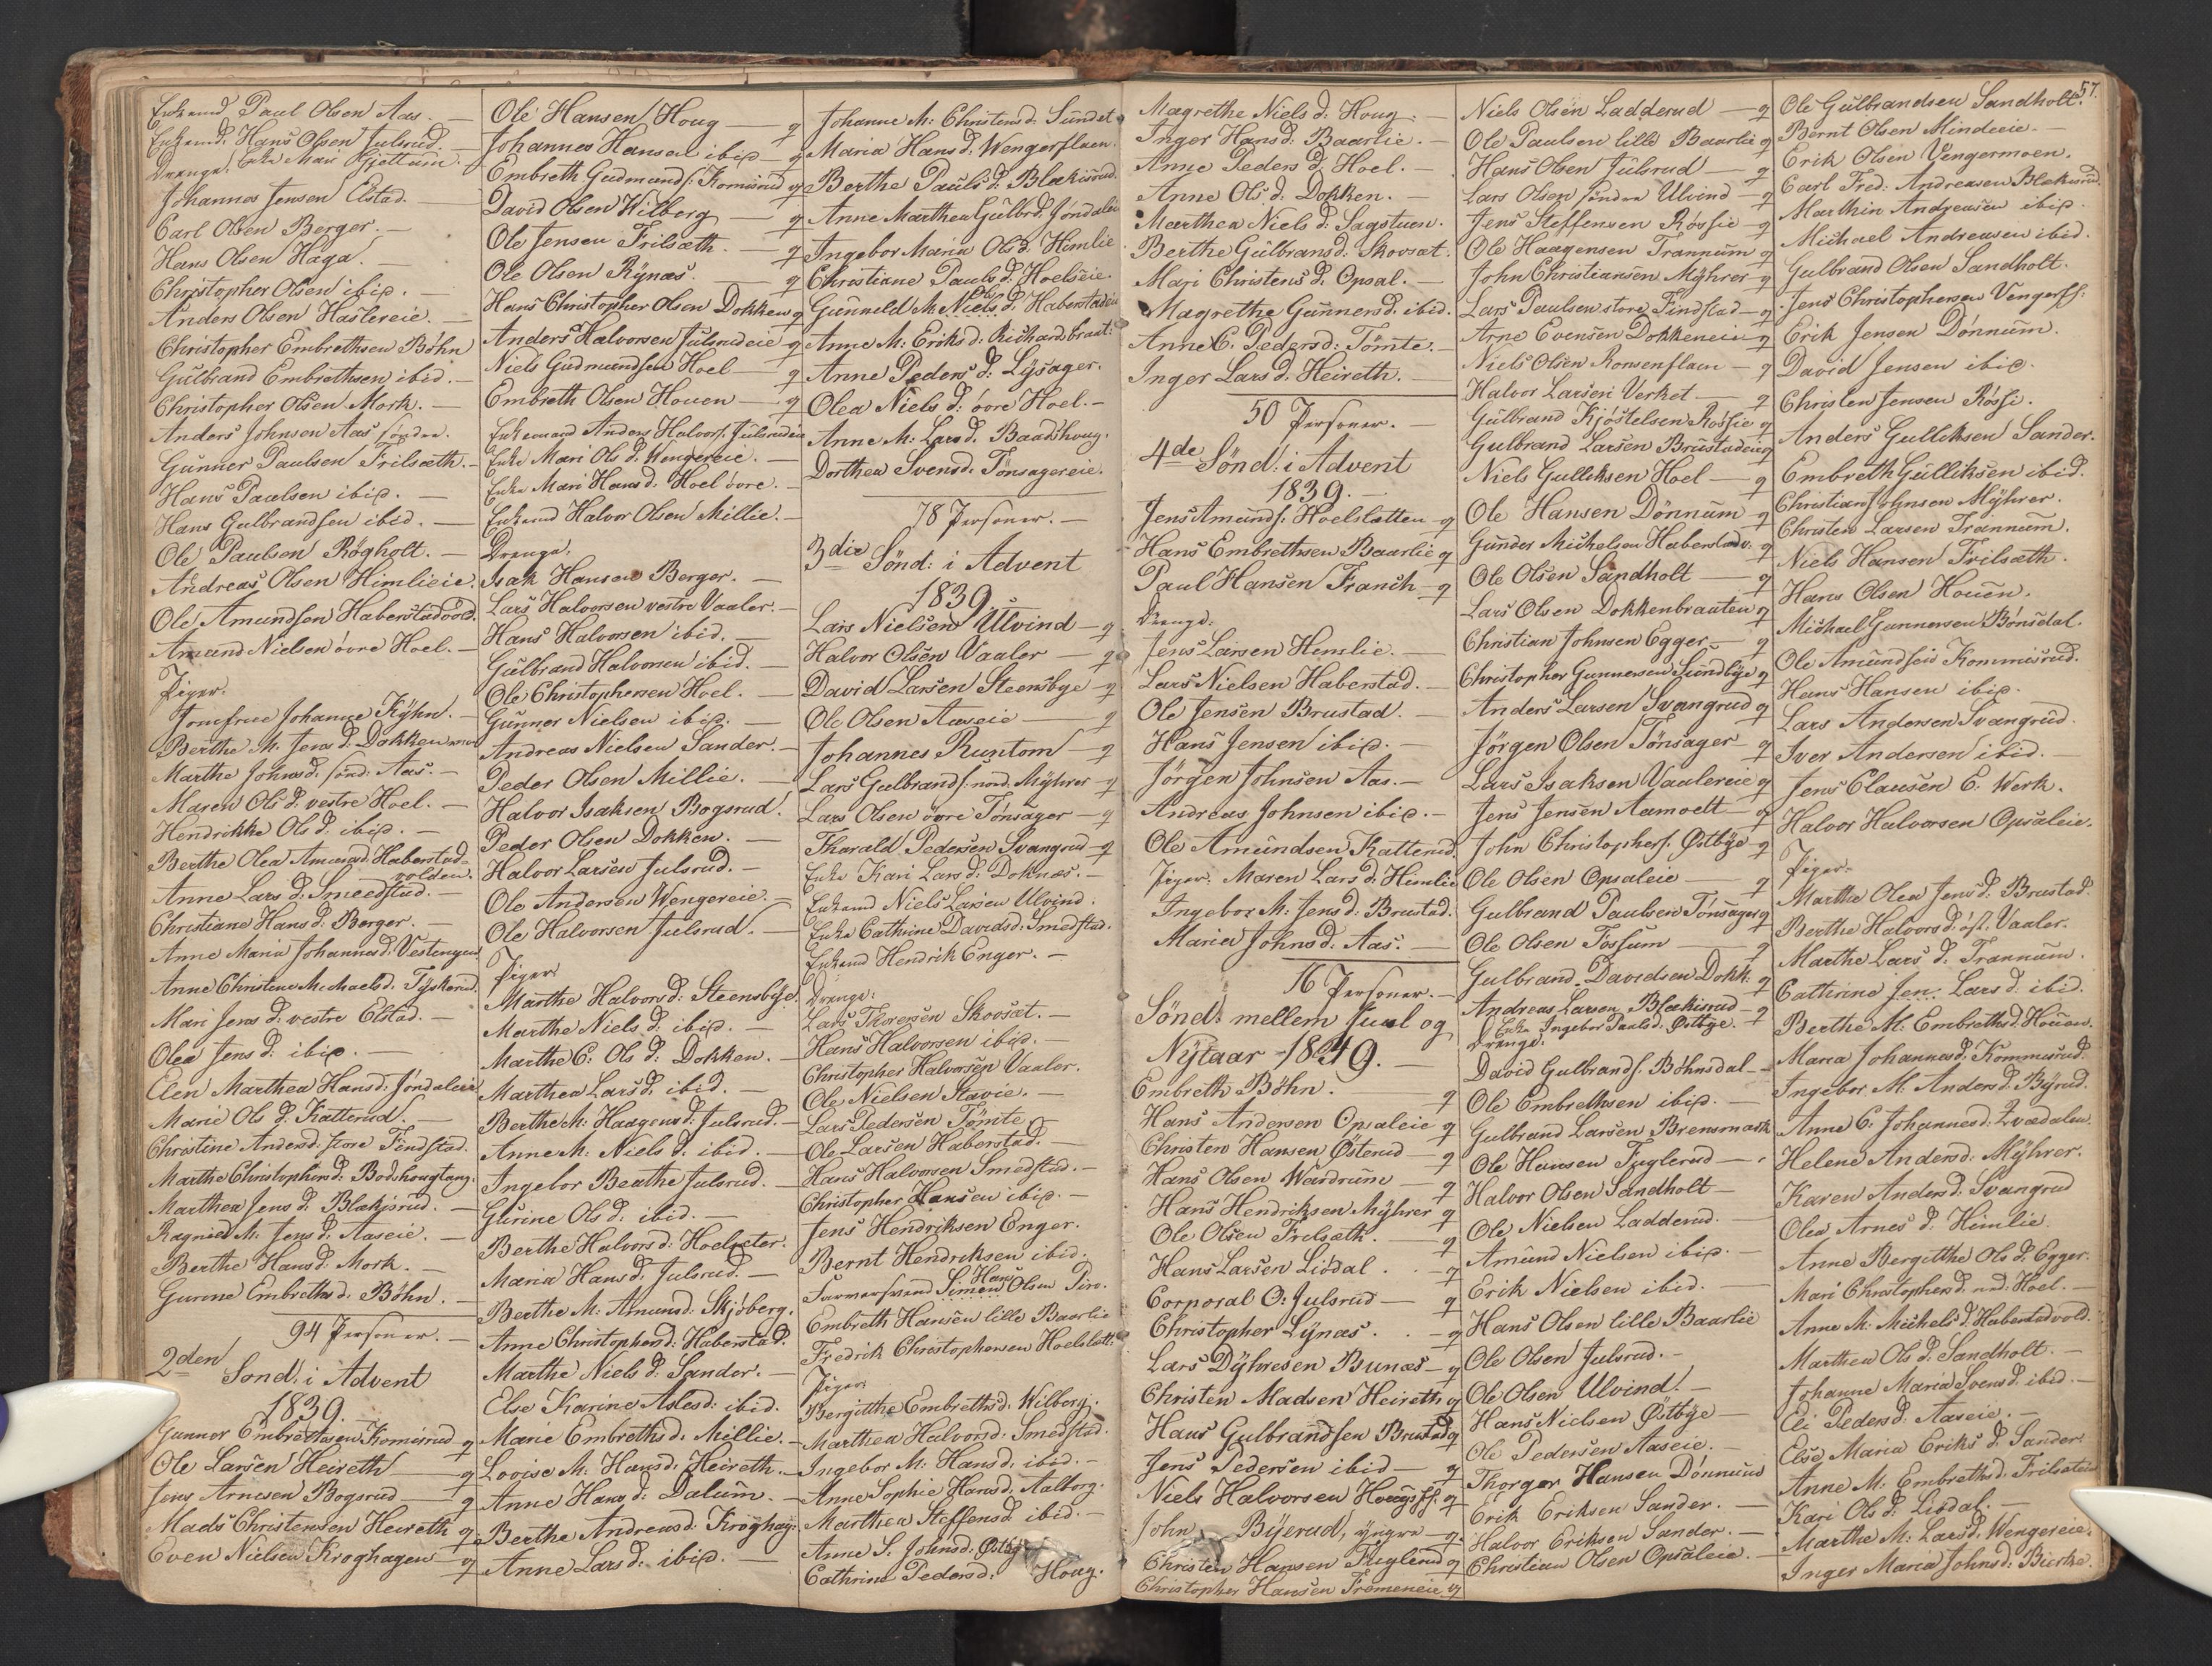 Enkemd Paul Olsen Aas. —
Enkemd. Hans Olsen Julsrud. —
Drenge. Enke Mari Gjettum.
Johannes Jensen Elstad.
Carl Olsen Berger. —
Hans Olsen Haga. —
Christopher Olsen ibid. —
Anders Olsen Haslereie. —
Christopher Embrethsen Böhn
Gulbrand Embrethsen ibid. —
Christopher Olsen Mork. —
Anders Johnsen Aas söndre.
Gunner Paulsen Frilsæth. —
Hans Paulsen ibid. —
Hans Gulbrandsen ibid. —
Ole Paulsen Rögholt. —
Andreas Olsen Himlieie.
Ole Amundsen Haberstadvold.
Amund Nielsen övre Hoel. —
Piger.
Jomfrue Johanne Kyhn. —
Berthe M. Jens d. Dokken
Marthe Johns d. sönd. Aas. —
Maren Ols d. vestre Hoel. —
Hendrikke Ols d. ibid. —
Berthe Olea Amunds d. Haberstad-
volden.
Anne Lars d. Smeedstad. —
Christiane Hans d. Berger. —
Anne Maria Johannes d. Vestengen
Anne Christine Michaels d. Tyskerud.
Mari Jens d. vestre Elstad. —
Olea Jens d. ibid. —
Elen Marthea Hans d. Jöndaleie
Marie Ols d. Katterud. —
Christine Anders d. store Findstad.
Marthe Christophers d. Bodshougtang.
Marthea Jens d. Blækisrud. —
Ragnild M. Jens d. Aaseie. —
Berthe Hans d. Mork. —
Gurine Embreths d. Böhn. —
94 Personer. —
2den Sönd. i Advent
1839.
Gunner Embrethsen Komisrud g
Ole Larsen Heireth — g
Jens Arnesen Bogsrud — g
Mads Christensen Heireth g
Even Nielsen Kroghagen — g
Ole Hansen Houg — g
Johannes Hansen ibid — g
Embreth Gudmunds. Komisrud g
David Olsen Wilberg — g
Ole Jensen Frilsæth. — g
Ole Olsen Rynæs. — g
Hans Christopher Olsen Dokken g
Anders Halvorsen Julsrudeie g
Niels Gudmundsen Hoel — g
Embreth Olsen Houen — g
Enkemand Anders Halvors. Julsrudeie
Enke Mari Ols d. Wengereie. —
Enke Mari Hans d. Hoel övre. —
Enkemd Halvor Olsen Millie. —
Drenge.
Isak Hansen Berger. —
Lars Halvorsen vestre Vaaler. —
Hans Halvorsen ibid. —
Gulbrand Halvorsen ibid. —
Ole Christophersen Hoel. —
Gunner Nielsen ibid. —
Andreas Nielsen Sander. —
Peder Olsen Millie. —
Halvor Isaksen Bogsrud.
Peder Olsen Dokken. —
Halvor Larsen Julsrud. —
Ole Andersen Wengereie. —
Ole Halvorsen Julsrud. —
Piger
Marthe Halvors d. Steensbye.
Marthe Niels d. ibid. —
Marthe C. Ols d. Dokken. —
Marthea Lars d. ibid. —
Berthe M. Haagens d. Julsrud. —
Anne M. Niels d. ibid. —
Ingebor Berthe Julsrud. —
Gurine Ols d. ibid. —
Berthe Halvors d. Hoelseter.
Maria Hans d. Julsrud. —
Berthe M. Amunds d. Skjöberg.
Anne Christophers d. Haberstad.
Marthe Niels d. Sander. —
Else Karine Asles d. ibid.
Marie Embreths d. Millie. —
Lovise M. Hans d. Heireth. —
Anne Hans d. Dalum. —
Berthe Andreas d. Kroghag.
Anne Lars d. ibid. —
Johanne M. Christens d. Sundet
Maria Hans d. Wengerflaen.
Berthe Pauls d. Blækisrud.
Anne Marthea Gulbr d. Jöndalen
Ingebor Maria Ols d. Himlie
Christiane Pauls d. Hoelseie.
Gunneld M. Niels d. Haberstadeie
Anne M. Eriks d. Richardsbraat.
Anne Peders d. Lysager.
Olea Niels d. övre Hoel. —
Anne M. Lars d. Baadshoug.
Dorthea Svens d. Tönsagereie.
78 Personer. —
3die Sönd. i Advent
1839.
Lars Nielsen Ulvind — g
Halvor Olsen Vaaler — g
David Larsen Steensbye — g
Ole Olsen Aaseie — g
Johannes Runtom — g
Lars Gulbrands. nord. Myhrer — g
Lars Olsen övre Tönsager — g
Tharald Pedersen Svangrud — g
Enke Kari Lars d. Doknæs. —
Enkemd Niels Larsen Ulvind.
Enke Cathrine Davids d. Smedstad.
Enkemd Hendrik Enger. —
Drenge:
Lars Thoresen Skovsæt. —
Hans Halvorsen ibid. —
Christopher Halvorsen Vaaler.
Ole Nielsen Stavie. —
Lars Pedersen Tömte
Ole Larsen Haberstad. —
Hans Halvorsen Smedstad. —
Christopher Hansen ibid. —
Jens Hendriksen Enger.
Bernt Hendriksen ibid.
Hans
Simen Olsen
Embreth Hansen lille Baarlie
Fredrik Christophersen Hoelslæt.
Piger
Bergitthe Embreths d. Wilberg.
Marthea Halvors d. Smedstad.
Ingebor M. Hans d. ibid. —
Anne Sophie Hans d. Aalborg.
Marthea Steffens d. ibid. —
Anne S. Johns d. Östby
Cathrine Peders d. Houg.
57.
Magrethe Niels d. Houg.
Inger Hans d. Baarlie. —
Anne Peders d. Hoel. —
Anne Ols d. Dokken. —
Marthea Niels d. Sagstuen.
Berthe Gulbrans d. Skovsæt.
Mari Christens d. Opsal. —
Magrethe Gunners d. ibid.
Anne C. Peders d. Tömte. —
Inger Lars d. Heireth. —
50 Personer. —
4de Sönd. i Advent
1839. —
Jens Amunds. Hoelslætten g
Hans Embrethsen Baarlie g
Paul Hansen Franch — g
Drenge:
Jens Larsen Himlie. —
Lars Nielsen Haberstad. —
Ole Jensen Brustad. —
Hans Jensen ibid. —
Jörgen Johnsen Aas. —
Andreas Johnsen ibid. —
Ole Amundsen Katterud.
Piger. Maren Lars d. Himlie
Ingebor M. Jens d. Brustad.
Maria Johns d. Aas. —
16 Personer. —
Sönd. mellem Juul og
Nytaar 1849. —
Embreth Böhn. g
Hans Andersen Opsaleie g
Christen Hansen Österud — g
Hans Olsen Wardrum — g
Hans Hendriksen Myhrer g
Ole Olsen Frilsæth. — g
Hans Larsen Liödal. — g
Corporal O. Julsrud — g
Christopher Lynæs. — g
Lars Dyhresen Bunæs — g
Christen Madsen Heireth g
Hans Gulbrandsen Brustad g
Jens Pedersen ibid — g
Niels Halvorsen g
John Byerud, yngre — g
Christen Hansen Fuglerud g
Christopher Hansen g
Niels Olsen Ladderud — g
Ole Paulsen lille Baarlie g
Hans Olsen Julsrud — g
Lars Olsen söndre Ulvind — g
Jens Steffensen Rössie — g
Ole Haagensen Trannum g
John Christiansen Myhrer g
Lars Paulsen store Findstad — g
Arne Evensen Dokkeneie g
Niels Olsen Ronsenflaen — g
Halvor Larsen Verket — g
Gulbrand Kjöstelsen Rössie g
Gulbrand Larsen Brustadeie g
Niels Gulliksen Hoel — g
Ole Hansen Dönnum g
Gunder Michelsen Haberstadv. g
Ole Olsen Sandholt — g
Lars Olsen Dokkenbraaten g
Christian Johnsen Egger — g
Christopher Gunnersen Sundbye g
Anders Larsen Svangrud g
Jörgen Olsen Tönsager g
Lars Isaksen Vaalereie g
Jens Jensen Aamodt — g
John Christophers. Østbye g
Ole Olsen Opsaleie — g
Gulbrand Paulsen Tönsager g
Ole Olsen Fossum — g
Gulbrand Davidsen Dokk. g
Andreas Larsen Blækisrud — g
Enke Ingebor Pauls d. Østbye.
Drenge.
David Gulbrands. Böhnsdal —
Ole Embrethsen ibid. —
Gulbrand Larsen Brensmork
Ole Hansen Fuglerud —
Halvor Olsen Sandholt —
Ole Nielsen Ladderud. —
Amund Nielsen ibid. —
Erik Nielsen ibid.
Hans Olsen lille Baarlie
Ole Olsen Julsrud. —
Ole Olsen Ulvind. —
Hans Nielsen Østbye —
Ole Pedersen Aaseie. —
Thorger Hansen Dönnum
Erik Eriksen Sander. —
Halvor Eriksen Sander. —
Christian Olsen Opsaleie. —
Ole Gulbrandsen Sandholt.
Bernt Olsen Mindeeie. —
Erik Olsen Vengermoen.
Carl Fred: Andreasen Blækisrud.
Marthin Andreasen ibid.
Michael Andreasen ibid.
Gulbrand Olsen Sandholt.
Jens Christophersen Vengerfl:
Erik Jensen Dönnum.
David Jensen ibid.
Christen Jensen Rössi.
Anders Gulliksen Sander.
Embreth Gulliksen ibid.
Christian Johnsen Myhrer.
Christen Larsen Trannum.
Niels Hansen Frilsæth.
Hans Olsen Houen.
Michael Gunnersen Bönsdal.
Ole Amundsen Kommisrud.
Hans Hansen ibid.
Lars Andersen Svangrud.
Iver Andersen ibid. —
Jens Clausen E. Werk.
Halvor Halvorsen Opsaleie.
Piger.
Marthe Olea Jens d. Brustad.
Berthe Halvors d. öst. Vaaler.
Marthe Lars d. Trannum.
Cathrine Jen. Lars d. ibid.
Berthe M. Embreths d. Houen.
Maria Johannes d. Kommisrud.
Ingebor M. Anders d. Byrud.
Anne C. Johannes d. Qvædalen.
Helene Anders d. Myhrer.
Karen Anders d. Svangrud
Olea Arnes d. Himlie.
Anne Bergitthe Ols d. Egger.
Mari Christophers d. ned. Hoel. —
Anne M. Michels d. Haberstadvold.
Marthea Ols d. Sandholt. —
Johanne Maria Svens d. ibid. —
Eli Peders d. Aaseie. —
Else Maria Eriks d. Sander.
Anne M. Embreths d. Frilsæteie
Kari Ols d. Liödal. —
Marthe M. Lars d. Wengereie.
Inger Maria Johns d. Bierke.